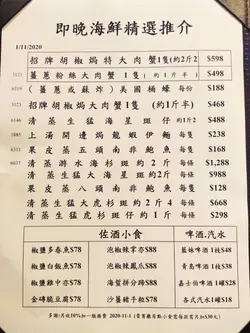 即晚海鮮精選推介
1/11/2020
招牌胡椒焗特大肉蟹1隻(約2斤2 $598
3123 薑蔥粉絲大肉蟹1隻 (約1斤半 $498
6219 (薑蔥或蘇炸)美國桶蠔 每份 $188
3123 招牌胡椒焗肉蟹1隻 (約1斤半 $468
6145 清蒸生猛海星斑仔 每份 $288
1885 上湯開邊焗龍蝦伊麵 每隻 $238
6311 果皮蒸八頭南非鮑魚 每隻 $88
6037 清蒸游水海杉斑約2斤 每條 $1,288
清蒸生猛大海星斑約2斤 每條 $988
果皮蒸五頭南非鮑魚 每隻 $128
清蒸生猛大虎杉斑約2斤4 每條 $668
清蒸生猛虎杉斑仔約1斤 每條 $298
佐酒小食
椒鹽多春魚$78
泡椒辣掌亦$88
椒鹽白飯魚$78
泡椒辣鳳爪$88
椒鹽雞中亦$78
海蜇拼分蹄$88
金磚脆豆腐$78
沙薑豬手粒$78
啤酒,汽水
藍妹啤酒 1枝$48
青島啤酒 1枝$38
嘉士伯啤酒 1枝$38
各式汽水 1罐$18
多謝!另收10%加一服務費 2020-11-1